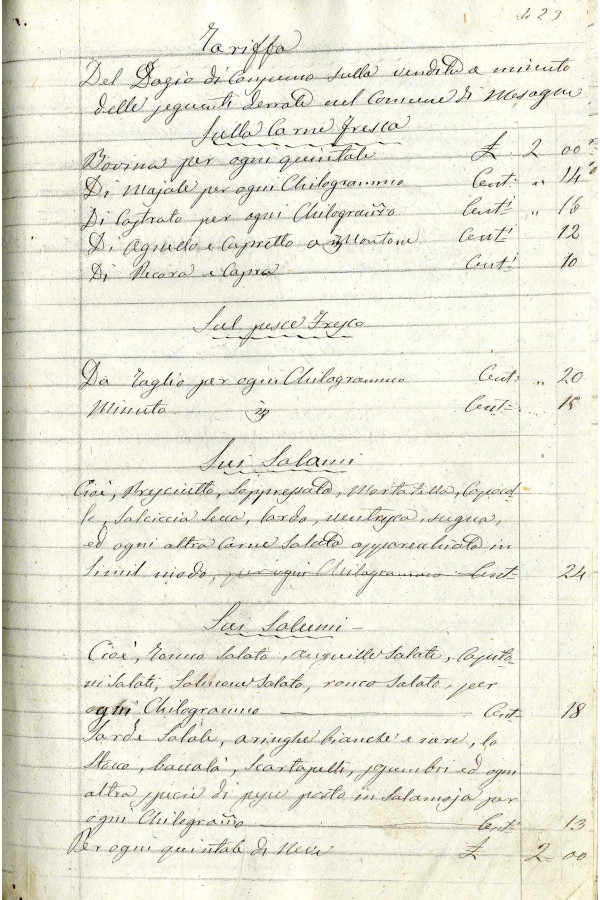 423
Tariffa
Del Dazio di Consumo sulla vendita a minuto
delle seguenti derrate nel Comune di Mesagne
Sulla Carne fresca
Bovina per ogni quintale £ 2 00
Di Majale per ogni Chilogrammo Cent: " 14
Di Castrato per ogni Chilogram̃o Centi " 16
Di Agnello e Capretto o Montone Centi 12
Di Pecora e Capra Centi 10
Sul pesce Fresco
Da Taglio per ogni Chilogrammo Cent: " 20
Minuto id Cent= 15
Sui Salami
Cioè, Presciutto, Soppressata, Mortatella, Capocol-
lo, Salsiccia secca, Lardo, ventresca, sugna,
ed ogni altra carne salata apparecchiata in
simil modo, per ogni Chilogrammo Cent 24
Sui Salumi -
Cioè, Tonno Salato, Anguille Salate, Capito-
ni Salati, Salmone Salato, ronco Salato, per
ogni Chilogrammo Cent 18
Sarde Salate, aringhe bianche e nere, lo
Stocco, baccalà, Scartapelli, sgombri ed ogni
altra specie di pesce posto in Salamoja per
ogni Chilogram̃o Cent 13
Per ogni quintale di Neve £ 2=00